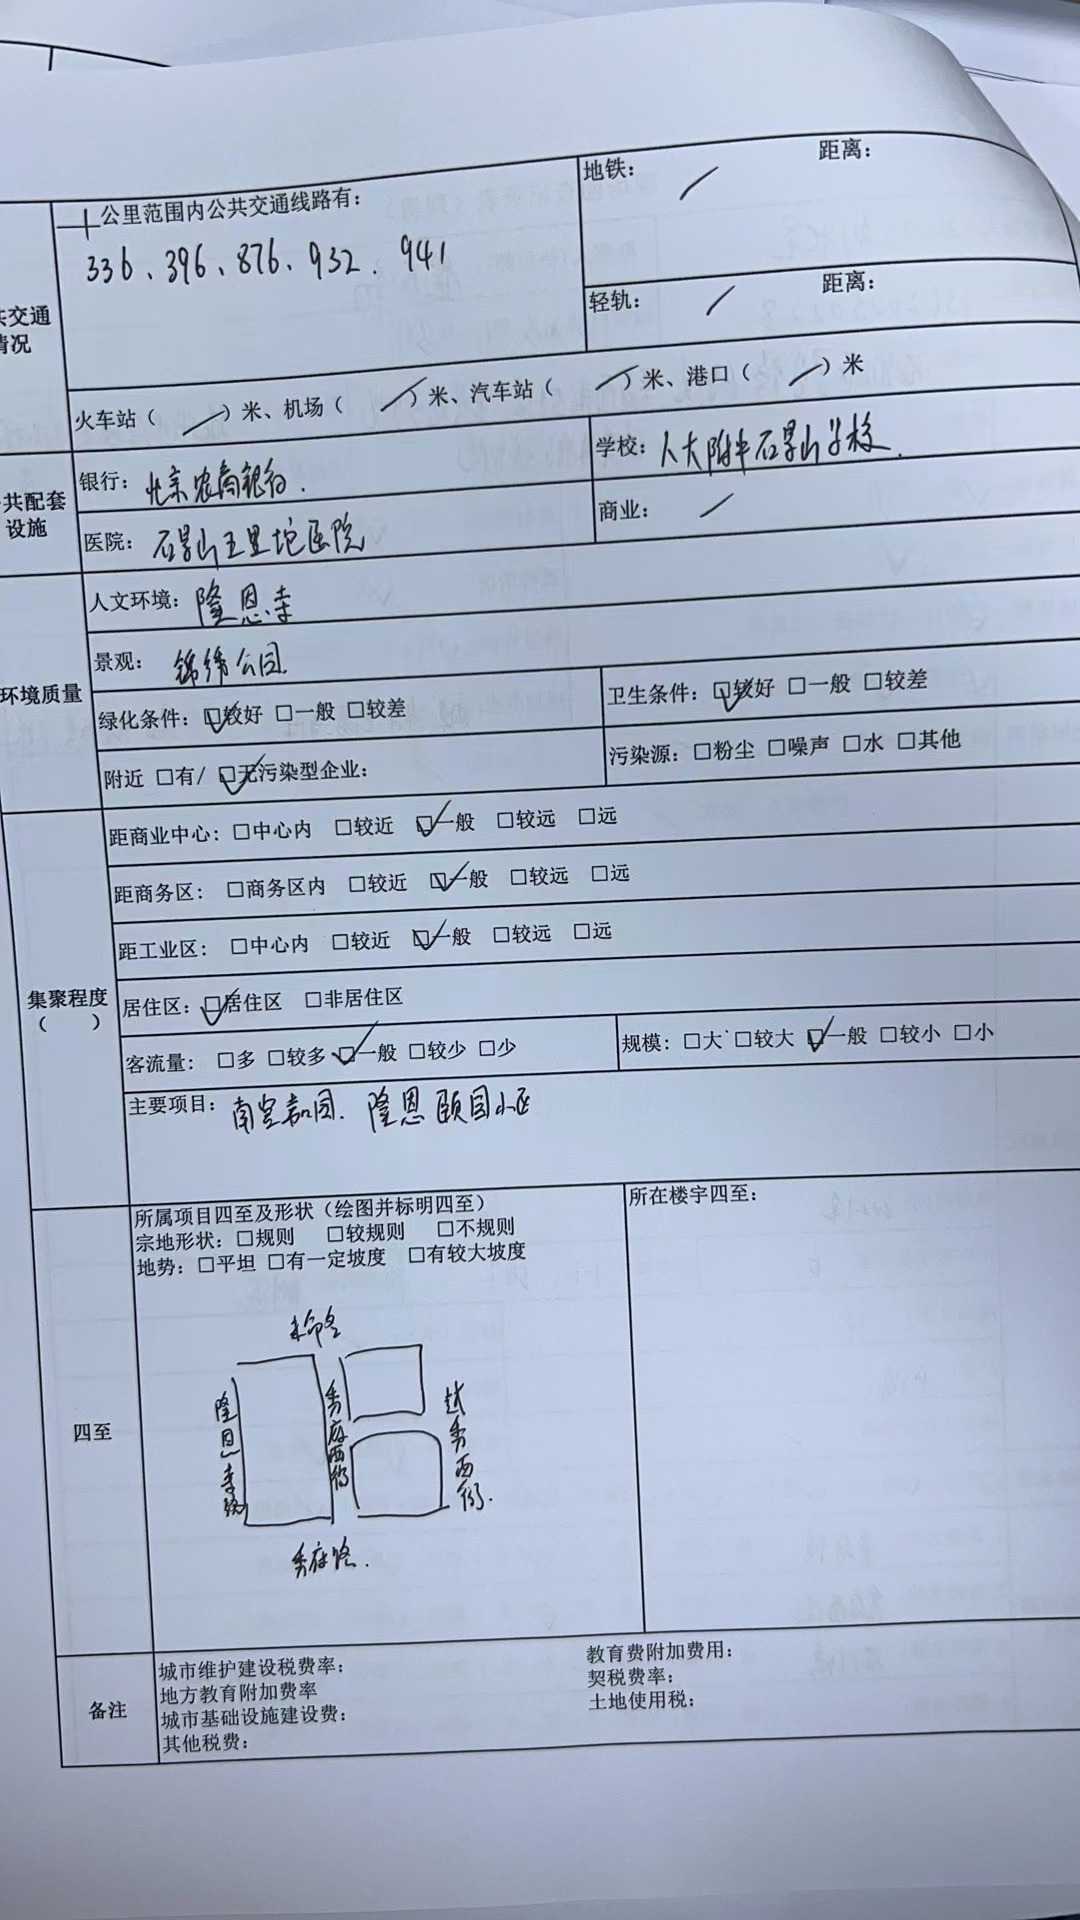 公里范围内公共交通线路有：
336、396、876、932、941
地铁： ／ 距离：
轻轨： ／ 距离：
共交通
情况
火车站（ ／ ）米、机场（ ／ ）米、汽车站（ ／ ）米、港口（ ／ ）米
共配套
设施
银行：北京农商银行.
学校：人大附中石景山学校.
医院：石景山五里坨医院
商业： ／
环境质量
人文环境：隆恩寺
景观：锦绣公园.
绿化条件：☑较好 □一般 □较差
卫生条件：☑较好 □一般 □较差
附近 □有/ ☑无污染型企业：
污染源：□粉尘 □噪声 □水 □其他
集聚程度
（ ）
距商业中心：□中心内 □较近 ☑一般 □较远 □远
距商务区：□商务区内 □较近 ☑一般 □较远 □远
距工业区：□中心内 □较近 ☑一般 □较远 □远
居住区：☑居住区 □非居住区
客流量：□多 □较多 ☑一般 □较少 □少
规模：□大 □较大 ☑一般 □较小 □小
主要项目：南宫嘉园. 隆恩颐园小区
四至
所属项目四至及形状（绘图并标明四至）
宗地形状：□规则 □较规则 □不规则
地势：□平坦 □有一定坡度 □有较大坡度
所在楼宇四至：
隆恩寺路
秀府西街
秀府路.
备注
城市维护建设税费率：
教育费附加费用：
地方教育附加费率
契税费率：
城市基础设施建设费：
土地使用税：
其他税费：